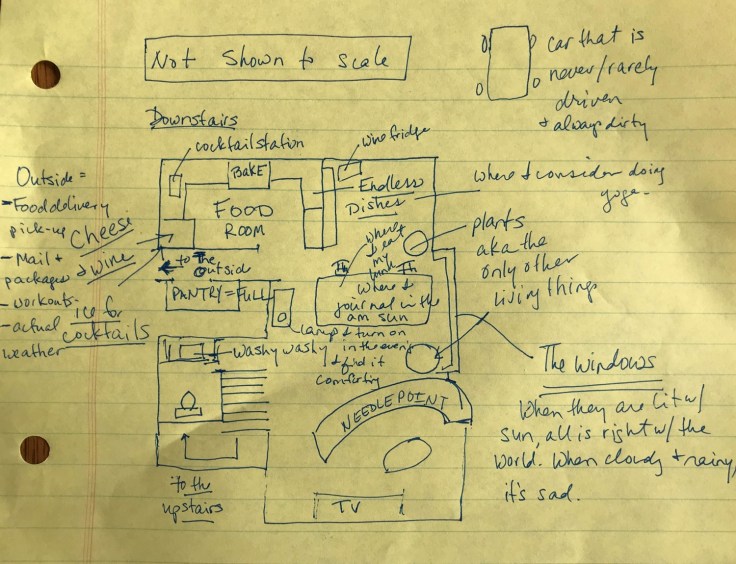 Not Shown to Scale
car that is
never/rarely
driven
+ always dirty
Downstairs
cocktail station
wine fridge
BAKE
FOOD
ROOM
Endless
Dishes
where I consider doing
yoga
Outside =
- Food delivery
pick-up
- Mail +
packages
- workouts
- actual
weather
Cheese
+ wine
ice for
cocktails
← to the
outside
PANTRY = FULL
where
I eat
my
lunch
where I
journal in the
am sun
plants
aka the
only other
living things
Lamp I turn on
in the evening
+ find it
comforting
washy washy
NEEDLEPOINT
TV
to the
upstairs
The windows
When they are lit w/
sun, all is right w/ the
world. When cloudy + rainy,
it's sad.